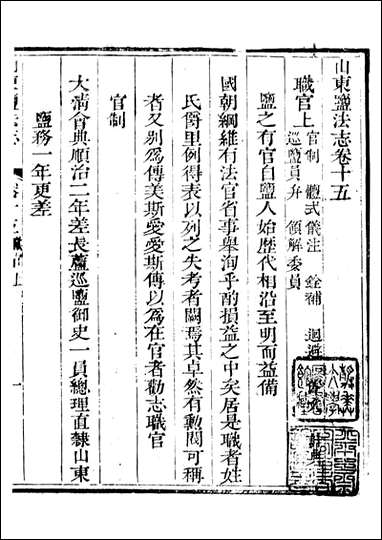 山東鹽法志卷十五
職官上 官制 體式儀注 銓補 迴避
巡鹽員弁 領解委員
鹽之有官自鹽人始歷代相沿至明而益備
國朝綱維有法官省事舉洵乎酌損益之中矣居是職者姓
氏爵里例得表以列之失考者闕焉其卓然有勳閥可稱
者又別爲傳美斯愛愛斯傳以爲在官者勸志職官
官制
大清會典順治二年差長蘆巡鹽御史一員總理直隸山東
鹽務一年更差